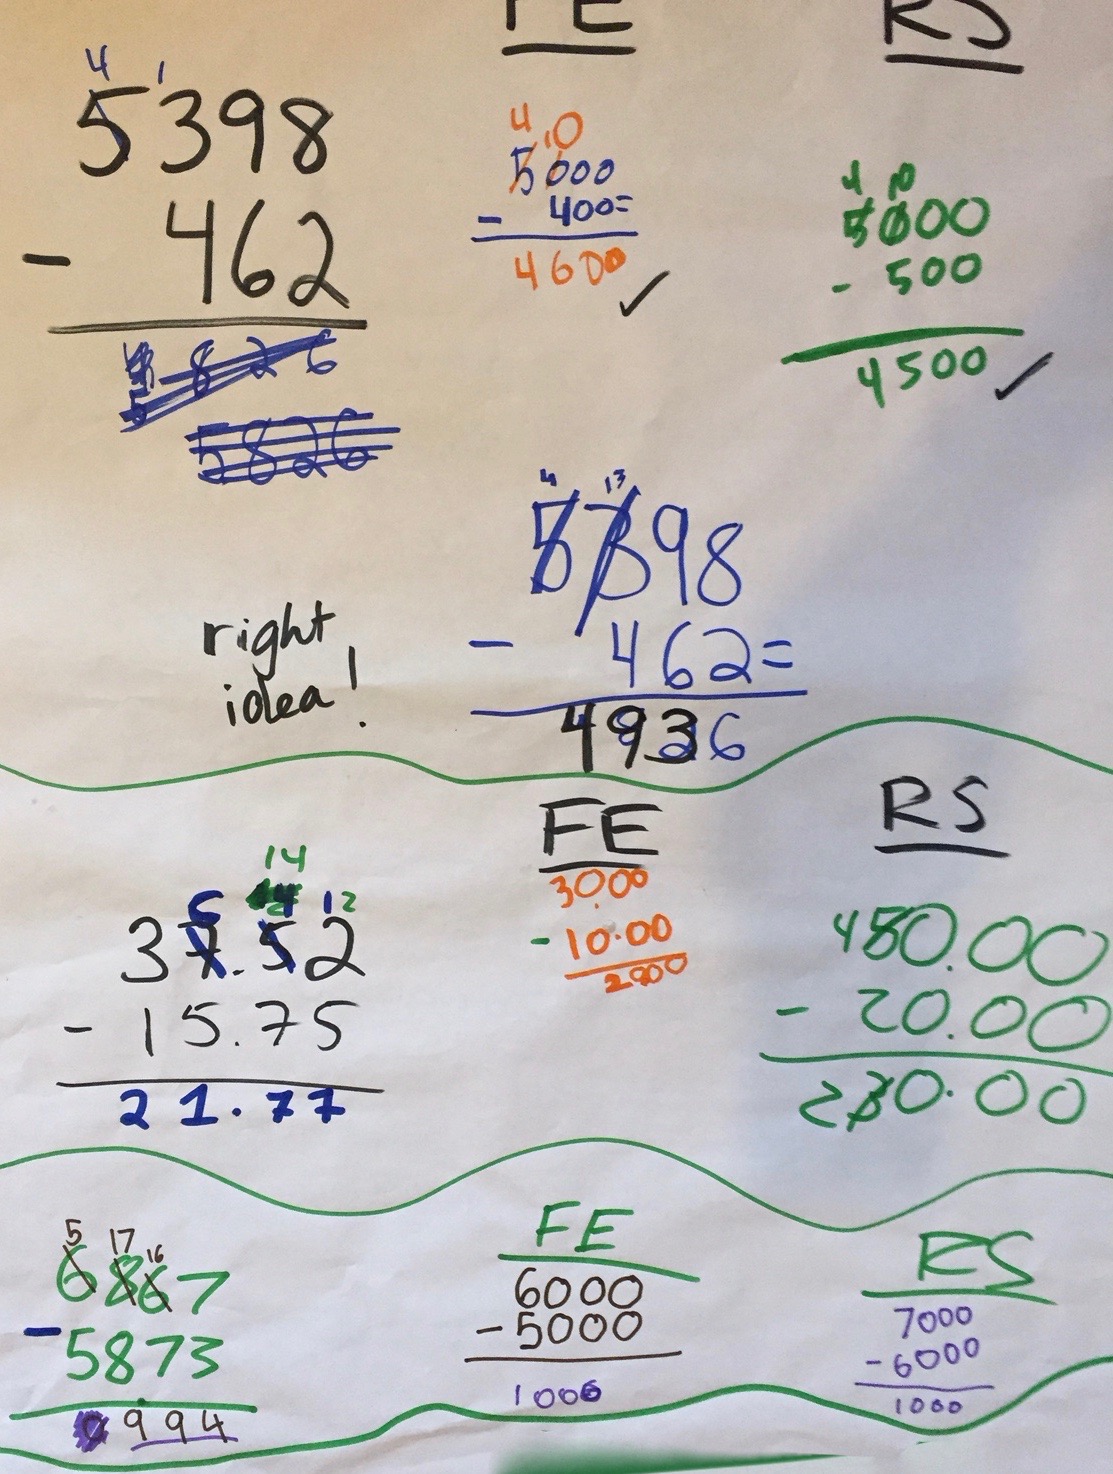 FE
RS
4 1
5398
- 462
4 10
5000
- 400=
4600 ✓
4 10
5000
- 500
4500 ✓
5826
4 13
5398
- 462=
4936
right
idea!
FE
RS
14
6 12
37.52
- 15.75
21.77
30.00
- 10.00
2000
- 20.00
5 17 16
6867
- 5873
0994
FE
6000
- 5000
1000
RS
7000
- 6000
1000